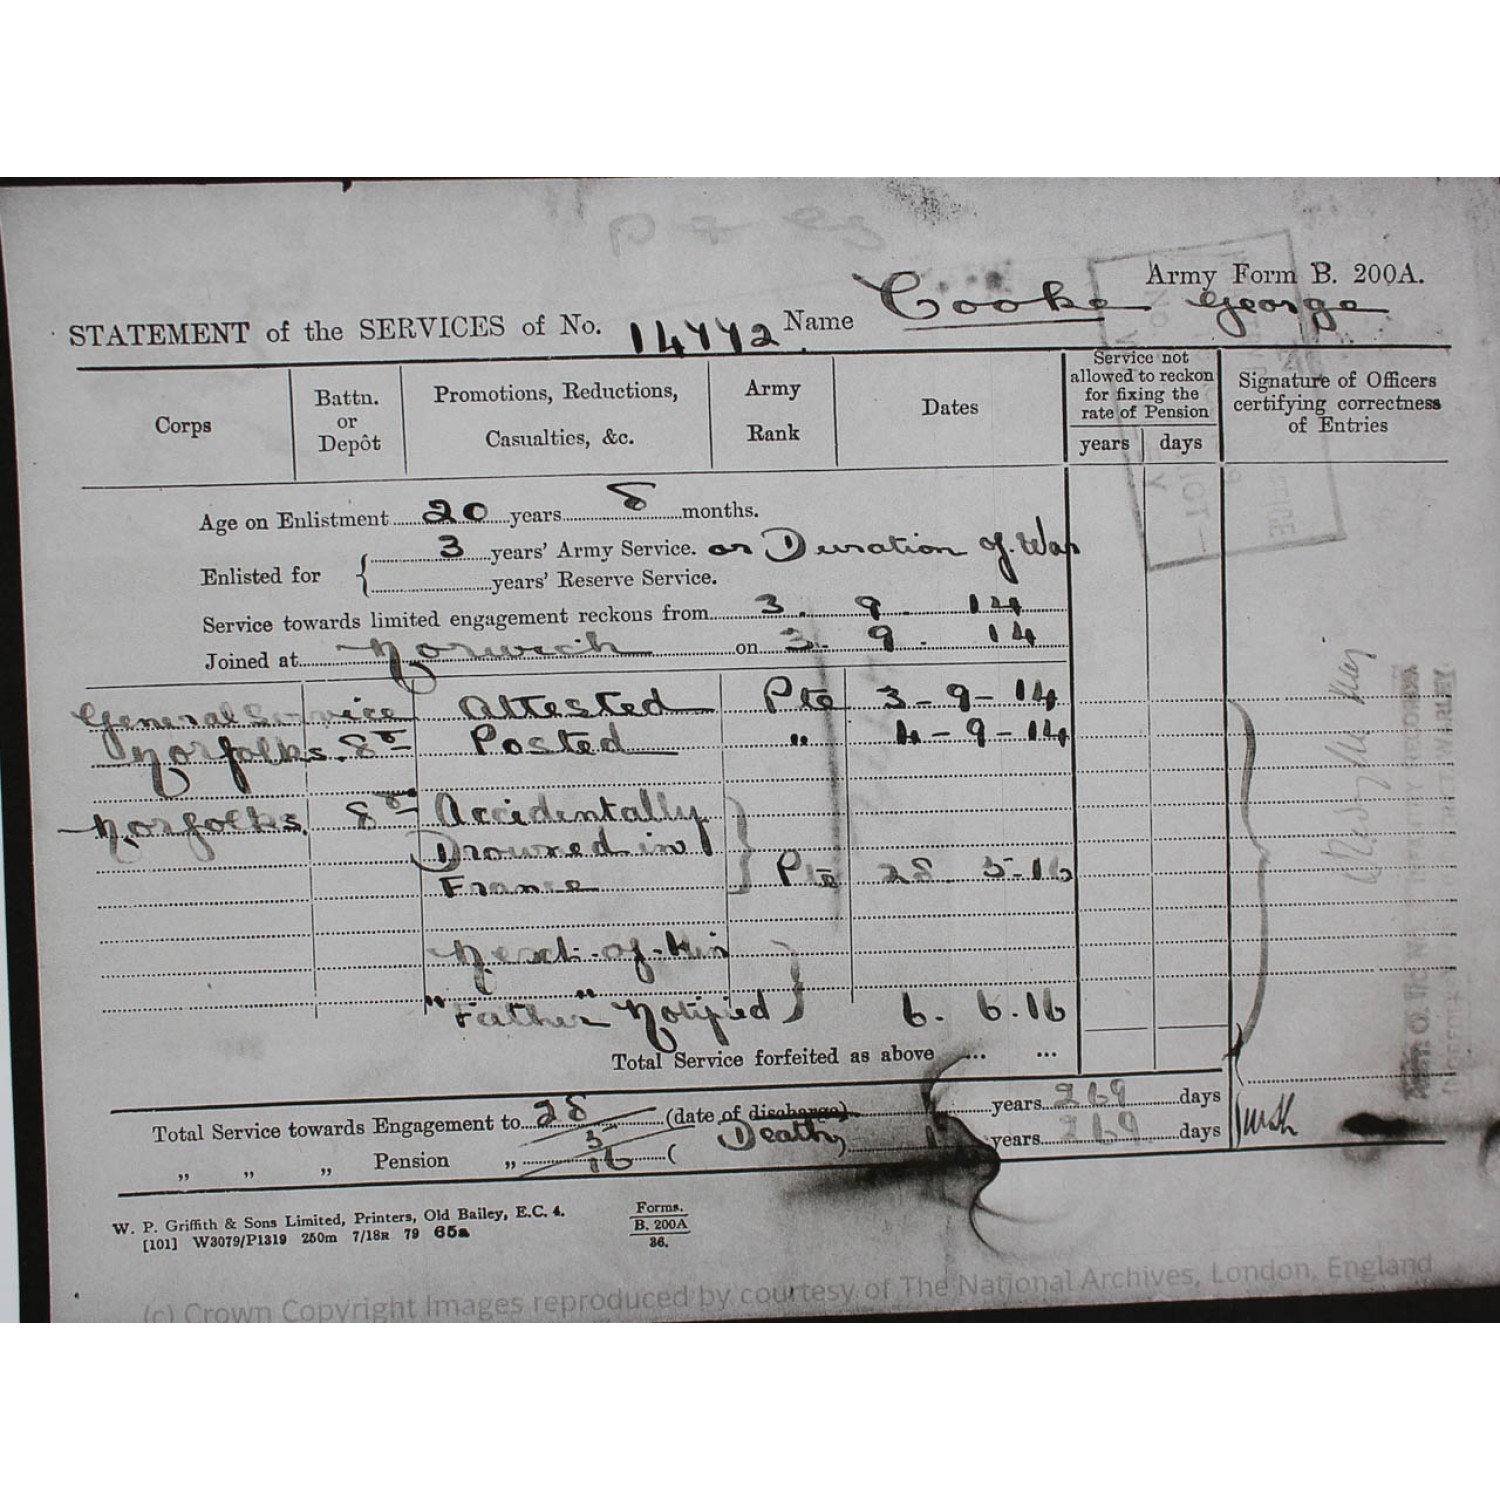 Army Form B. 200A.
STATEMENT of the SERVICES of No. 14772 Name Cooke George
Corps
Battn. or Depôt
Promotions, Reductions, Casualties, &c.
Army Rank
Dates
Service not allowed to reckon for fixing the rate of Pension
years days
Signature of Officers certifying correctness of Entries
Age on Enlistment 20 years 8 months.
Enlisted for { 3 years' Army Service. or Duration of War
years' Reserve Service.
Service towards limited engagement reckons from 3. 9. 14
Joined at Norwich on 3. 9. 14
General Service Attested Pte 3-9-14
Norfolks. 8th Posted " 4-9-14
Norfolks. 8th Accidentally
Drowned in
France Pte 28 5-16
Next-of-Kin
"Father" Notified 6. 6. 16
Total Service forfeited as above ... ...
Total Service towards Engagement to 28 (date of discharge) 1 years 269 days
" " " Pension " 5/16 ( Death) 1 years 269 days
W. P. Griffith & Sons Limited, Printers, Old Bailey, E.C. 4.
[101] W3079/P1319 250m 7/18R 79 65a
Forms.
B. 200A
36.
(c) Crown Copyright Images reproduced by courtesy of The National Archives, London, England